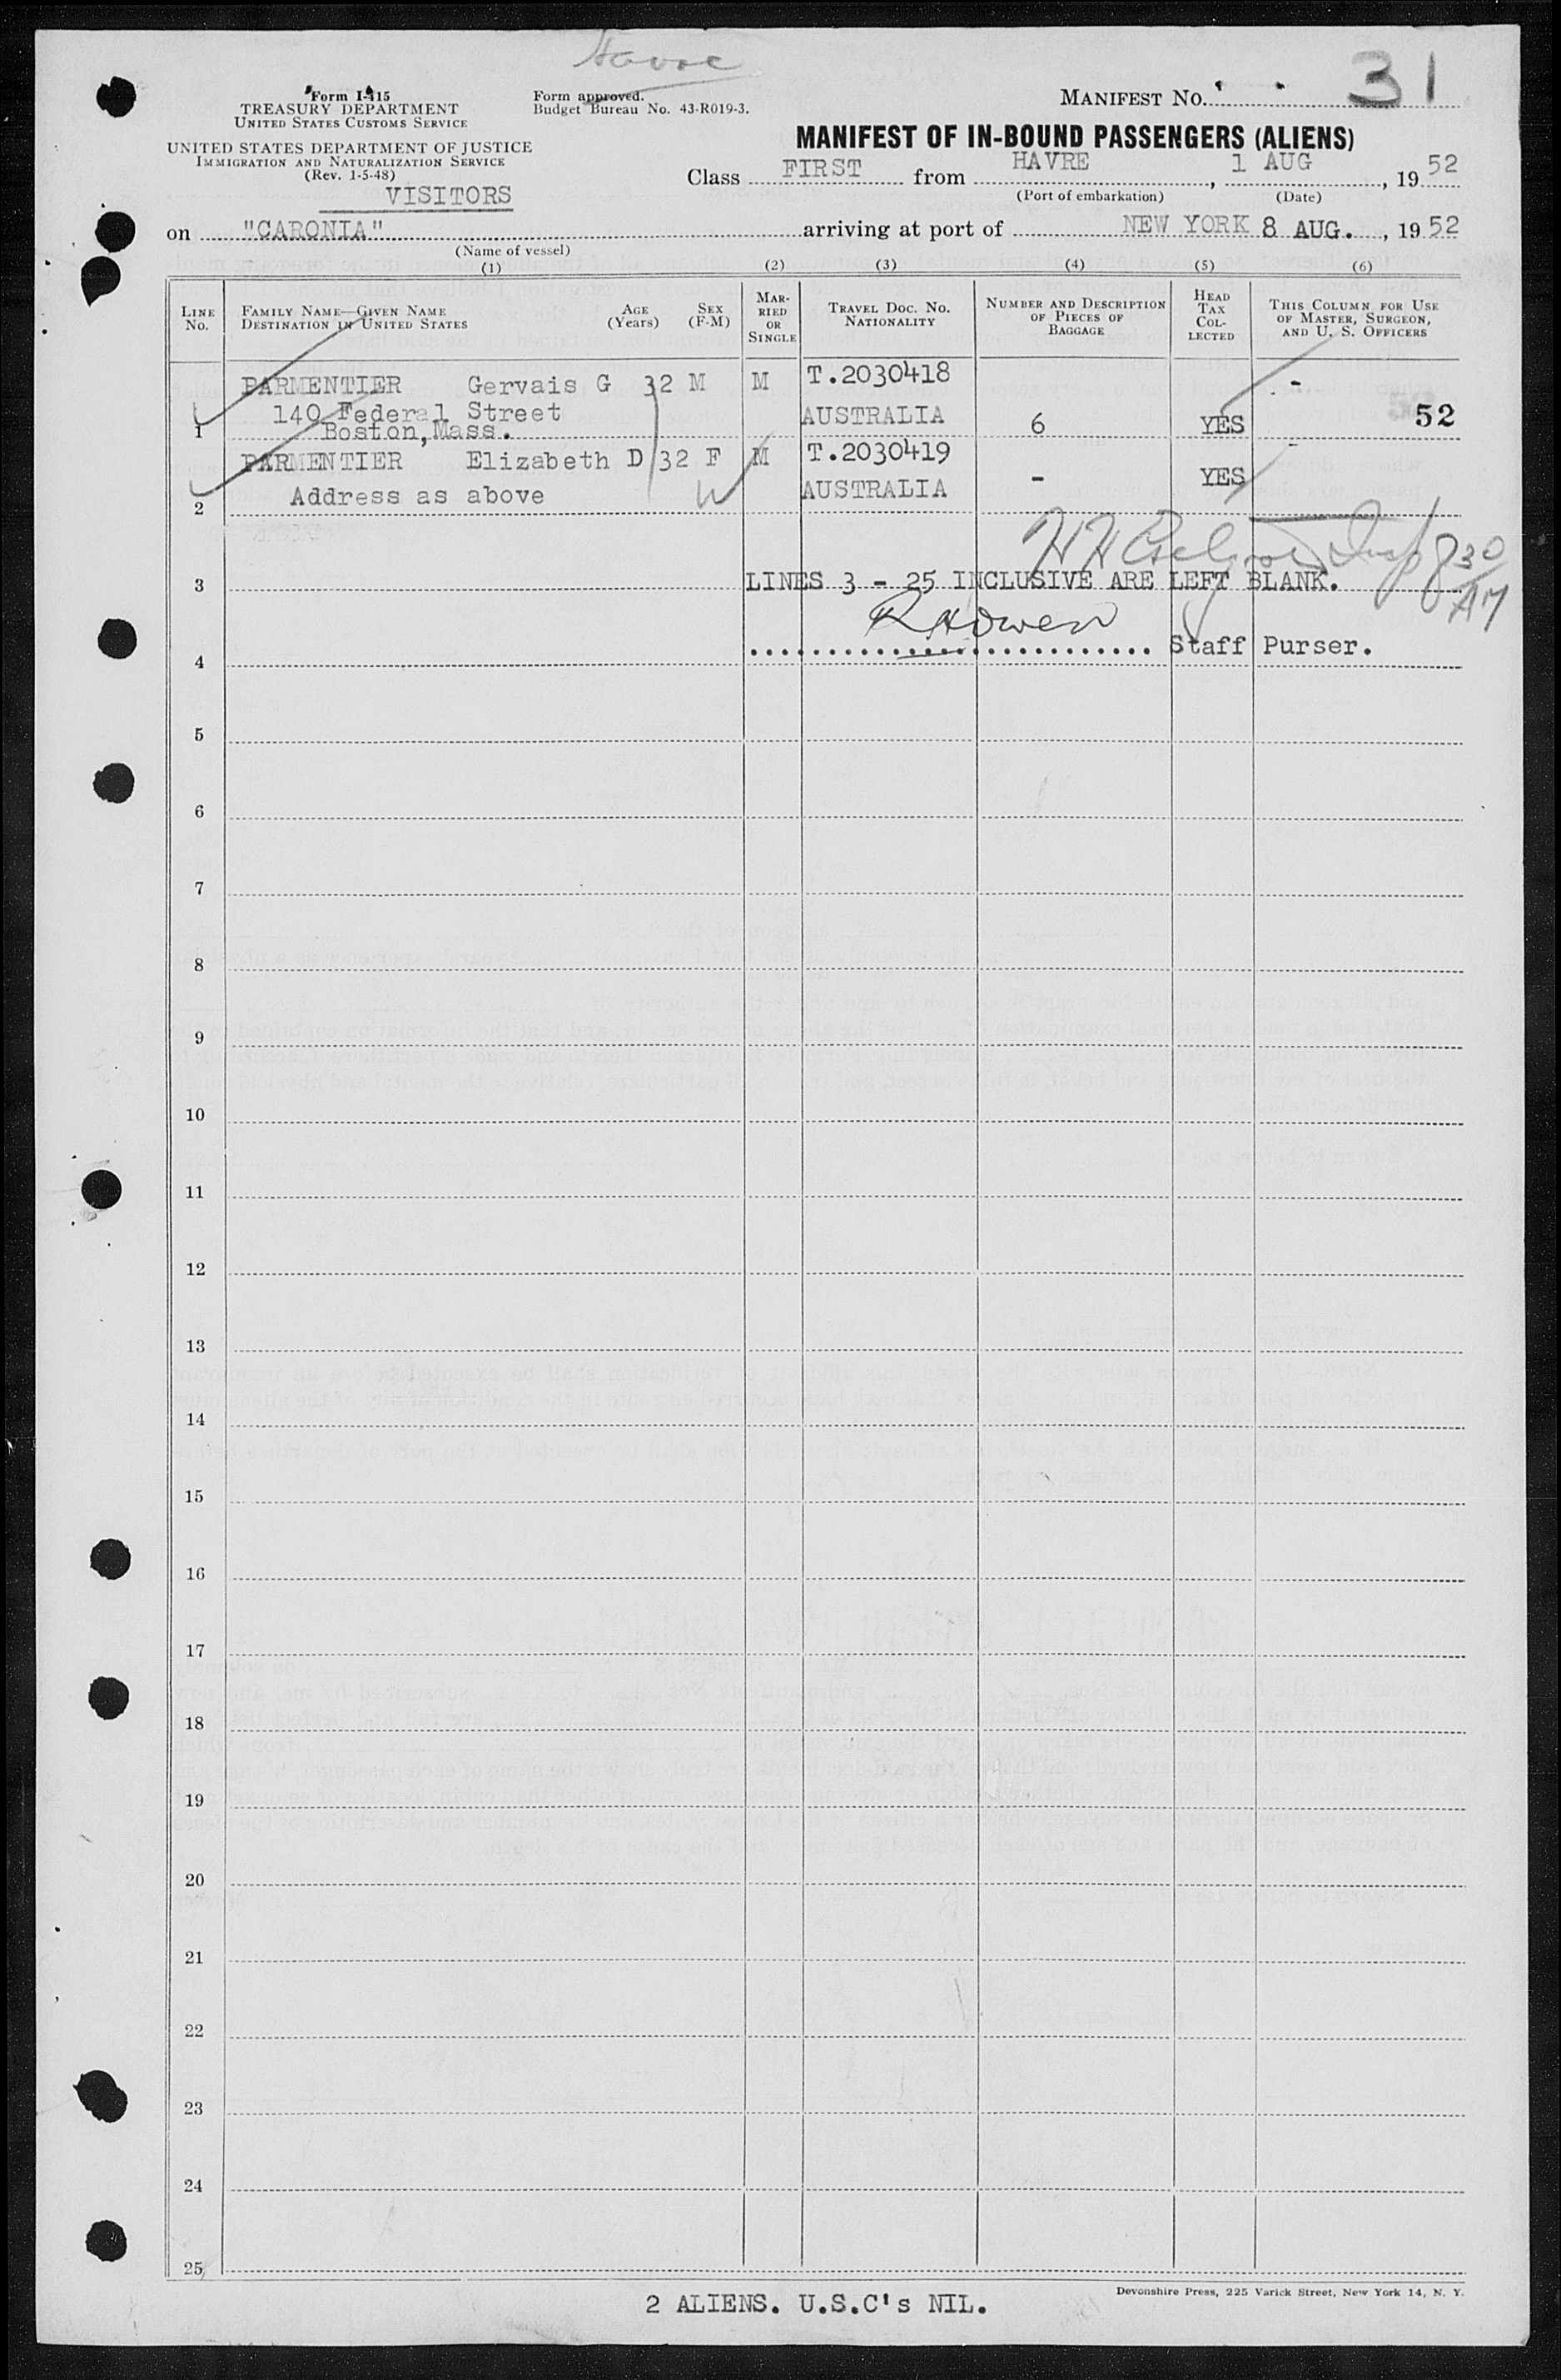 Havre
Form I-415
TREASURY DEPARTMENT
UNITED STATES CUSTOMS SERVICE
UNITED STATES DEPARTMENT OF JUSTICE
IMMIGRATION AND NATURALIZATION SERVICE
(Rev. 1-5-48)
VISITORS
Form approved.
Budget Bureau No. 43-R019-3.
MANIFEST No. 31
MANIFEST OF IN-BOUND PASSENGERS (ALIENS)
Class FIRST from HAVRE, 1 AUG, 1952
(Port of embarkation) (Date)
on "CARONIA" arriving at port of NEW YORK 8 AUG., 1952
(Name of vessel)
(1) (2) (3) (4) (5) (6)
LINE No.
FAMILY NAME—GIVEN NAME
DESTINATION IN UNITED STATES
AGE (Years)
SEX (F-M)
MAR-RIED OR SINGLE
TRAVEL DOC. NO. NATIONALITY
NUMBER AND DESCRIPTION OF PIECES OF BAGGAGE
HEAD TAX COL-LECTED
THIS COLUMN FOR USE OF MASTER, SURGEON, AND U. S. OFFICERS
PARMENTIER Gervais G 32 M M T.2030418 -
140 Federal Street AUSTRALIA 6 YES 52
1 Boston, Mass.
PARMENTIER Elizabeth D 32 F M T.2030419 -
Address as above AUSTRALIA - YES
2
830 AM
3 LINES 3 - 25 INCLUSIVE ARE LEFT BLANK.
R H Owen
4 Staff Purser.
5
6
7
8
9
10
11
12
13
14
15
16
17
18
19
20
21
22
23
24
25
Devonshire Press, 225 Varick Street, New York 14, N. Y.
2 ALIENS. U.S.C's NIL.